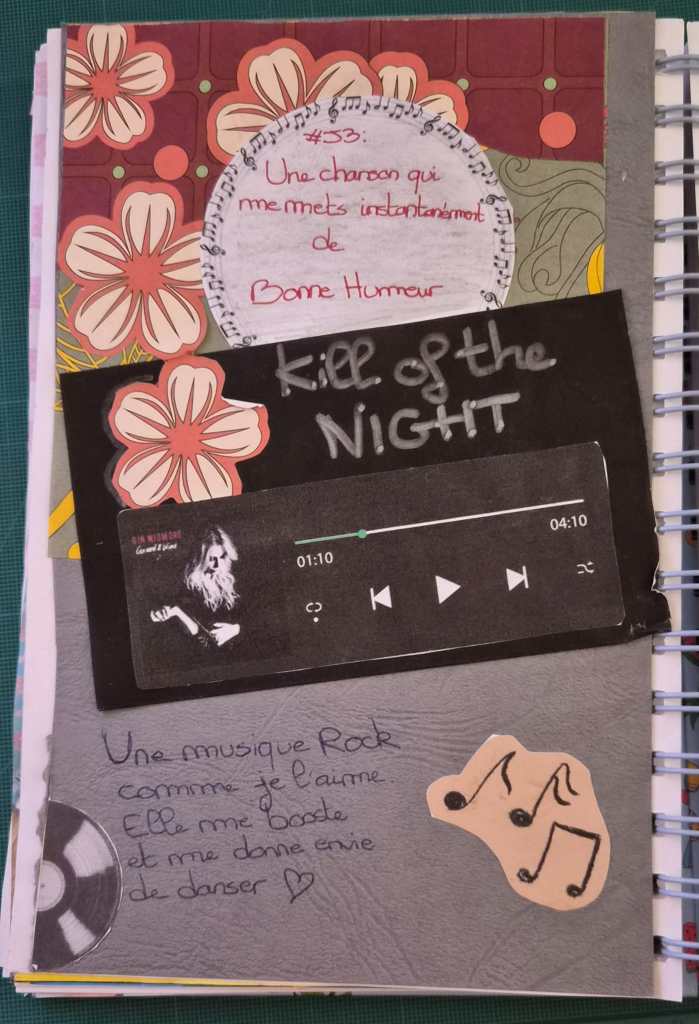 #53:
Une chanson qui
me mets instantanément
de
Bonne Humeur
Kill of the
NIGHT
GIN WIGMORE
Gravel & Wine
01:10
04:10
Une musique Rock
comme je l'aime.
Elle me booste
et me donne envie
de danser ♡